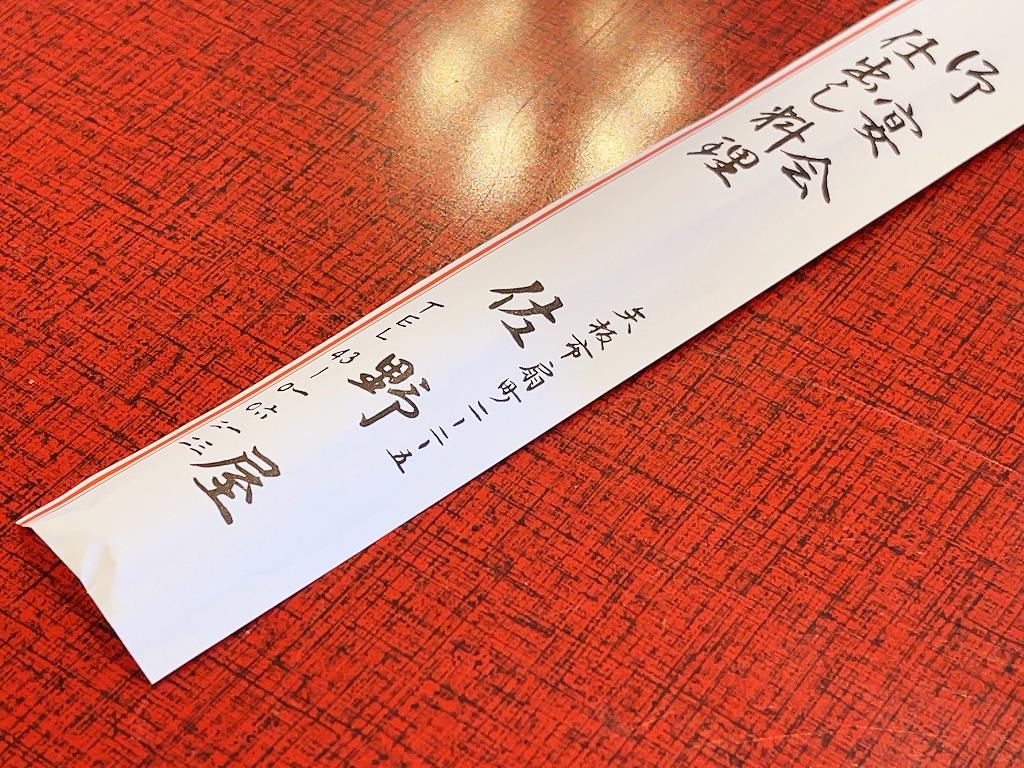 御宴会
仕出し料理
矢板市扇町二ー二ー五
佐野屋
TEL 43ー